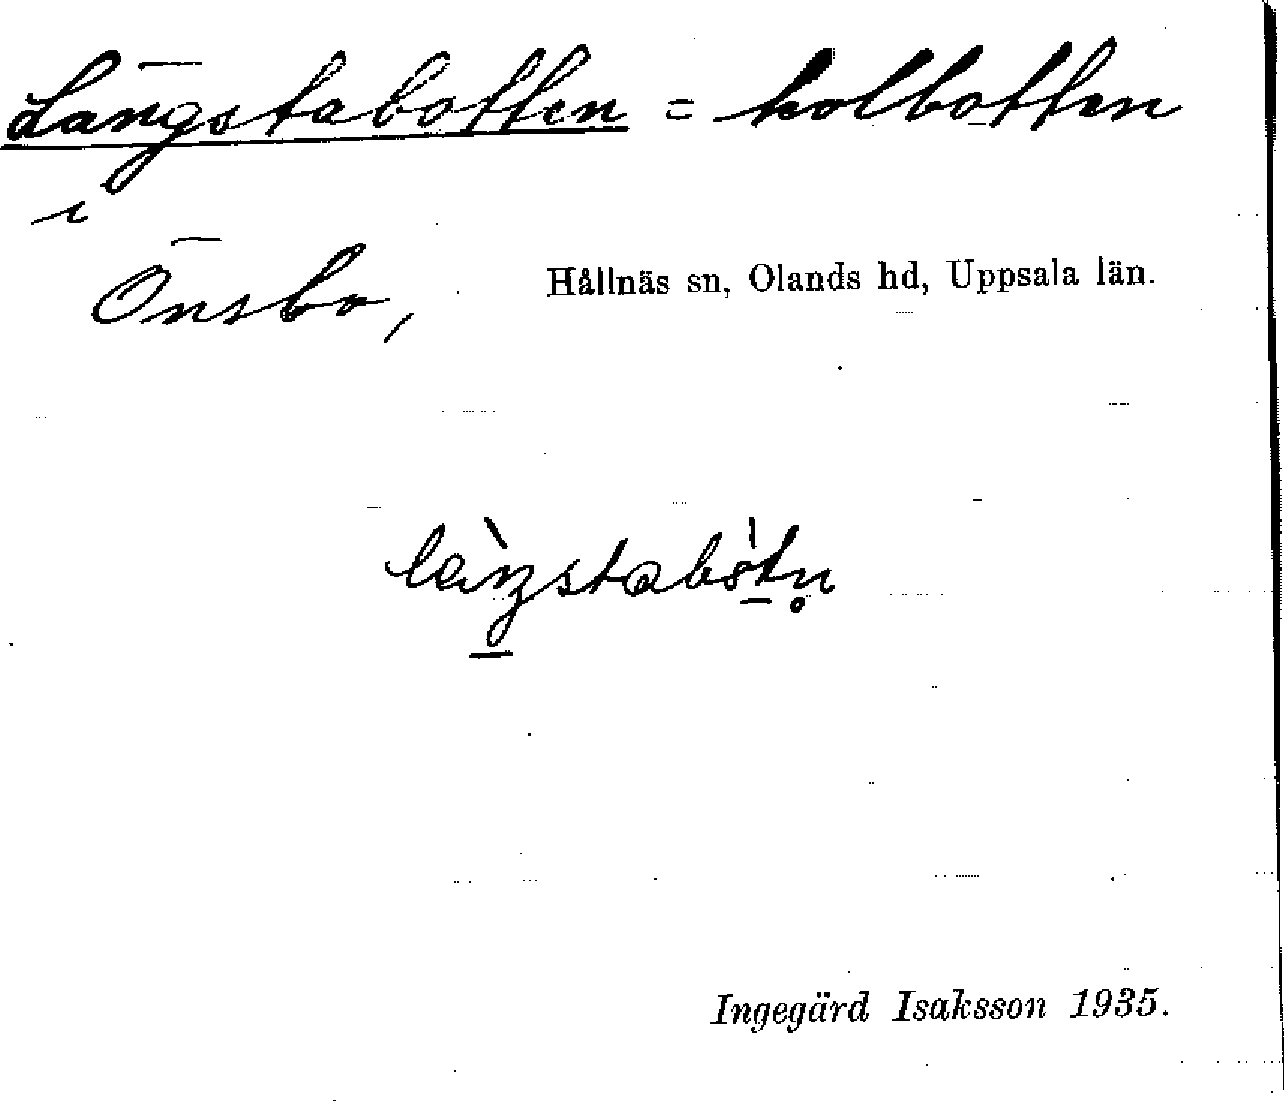 Längstabotten = kolbotten
i
Önsbo, Hållnäs sn, Olands hd, Uppsala län.
Ingegärd Isaksson 1935.